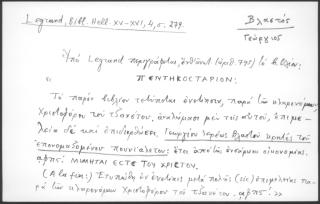 Legrand, Bibl. Hell. XV-XVI, 4, σ. 279.
Βλαστός
Γεώργιος
Ὑπὸ Legrand περιγράφεται, ἐνθ' ἀνωτ. (ἀριθ. 795) τὸ ἑ. βιβλίον:
ΠΕΝΤΗΚΟΣΤΑΡΙΟΝ:
Τὸ παρὸν βιβλίον τετύπωται ἐνετίησιν, παρὰ τῶν κληρονόμων
Χριστοφόρου τοῦ τζανέτου, ἀναλώμασι μὲν τοῖς αὐτοῦ, ἐπιμε-
λείᾳ δὲ καὶ ἐπιδιορθώσει, Γεωργίου ἱερέως Βλαστοῦ κρητὸς τοῦ
ἐπονομαζομένου πουνιαλέτου: ἔτει ἀπὸ τῆς ἐνσάρκου οἰκονομίας.
αφπς΄ ΜΙΜΗΤΑΙ ΕΣΤΕ ΤΟΥ ΧΡΙΣΤΟΥ.
(A la fin:) Ἐτυπώθη ἐν ἐνετίαις μετὰ πολλῆς (sic) ἐπιμελείας πα-
ρὰ τῶν κληρονόμων Χριστοφόρου τοῦ τζανέτου. αφπς΄.»